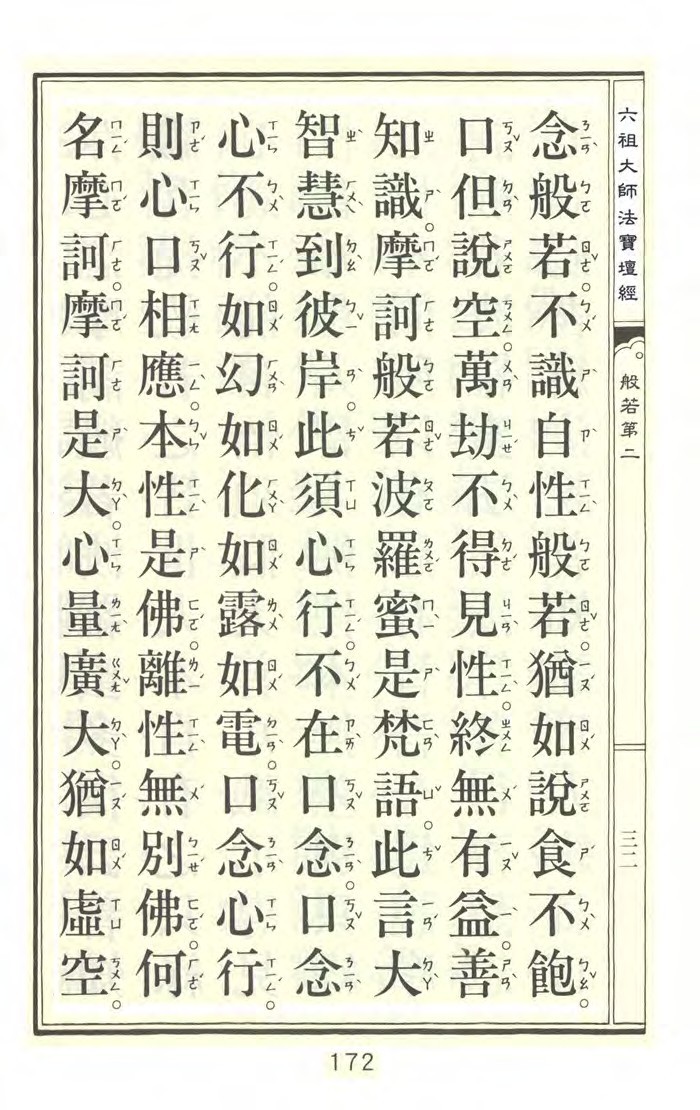 六祖大師法寶壇經
般若第二
三二
念般若。不識自性般若。猶如說食不飽。
口但說空。萬劫不得見性。終無有益。善
知識。摩訶般若波羅蜜是梵語。此言大
智慧到彼岸。此須心行。不在口念。口念
心不行。如幻如化如露如電。口念心行。
則心口相應。本性是佛。離性無別佛。何
名摩訶。摩訶是大。心量廣大。猶如虛空。
172